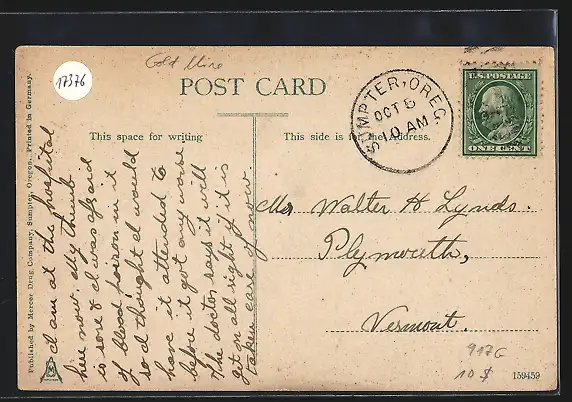 Gold Mine
17376
POST CARD
SUMPTER, OREG.
OCT 5
10 AM
U.S. POSTAGE
ONE CENT
This space for writing
This side is for the Address.
I am at the hospital
here now. My thumb
is sore & I was afraid
of blood poison in it
so I thought I would
have it attended to
before it got any worse
The doctor says it will
get on all right if it is
taken care of now
Mr Walter H Lynds.
Plymouth,
Vermont.
Published by Mercer Drug Company, Sumpter, Oregon. Printed in Germany.
917G
10 $
159459